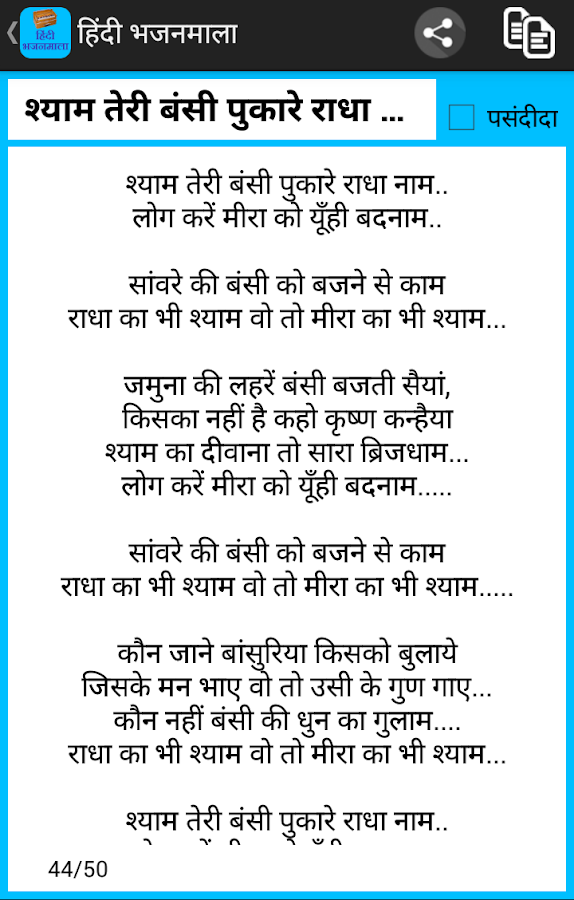 हिंदी भजनमाला
हिंदी
भजनमाला
श्याम तेरी बंसी पुकारे राधा ...
पसंदीदा
श्याम तेरी बंसी पुकारे राधा नाम..
लोग करें मीरा को यूँही बदनाम..
सांवरे की बंसी को बजने से काम
राधा का भी श्याम वो तो मीरा का भी श्याम...
जमुना की लहरें बंसी बजती सैयां,
किसका नहीं है कहो कृष्ण कन्हैया
श्याम का दीवाना तो सारा ब्रिजधाम...
लोग करें मीरा को यूँही बदनाम.....
सांवरे की बंसी को बजने से काम
राधा का भी श्याम वो तो मीरा का भी श्याम.....
कौन जाने बांसुरिया किसको बुलाये
जिसके मन भाए वो तो उसी के गुण गाए...
कौन नहीं बंसी की धुन का गुलाम....
राधा का भी श्याम वो तो मीरा का भी श्याम...
श्याम तेरी बंसी पुकारे राधा नाम..
44/50